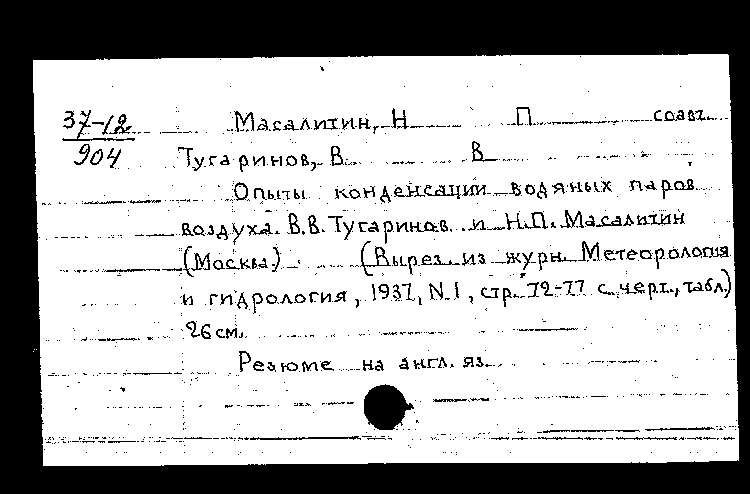 37-12 Масалитин, Н П соавт.
904 Тугаринов, В В
Опыты конденсации водяных паров
воздуха. В.В. Тугаринов и Н.П. Масалитин
(Москва) (Вырез. из журн. Метеорология
и гидрология, 1937, N 1, стр. 72-77 с черт., табл.)
26 см.
Резюме на англ. яз.